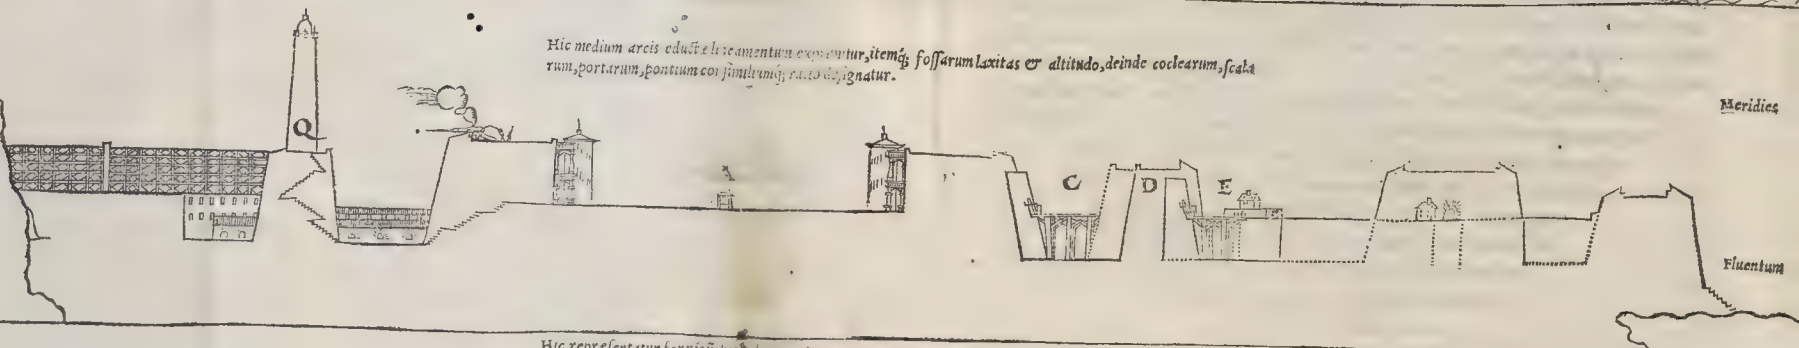 Hic medium arcis eductæ lineamentum exprimitur, itemq; fossarum laxitas & altitudo, deinde coclearum, scala
rum, portarum, pontium consimiliumq; ratio designatur.
Meridies
Q
C D E
Fluentum
Hic repræsentatur